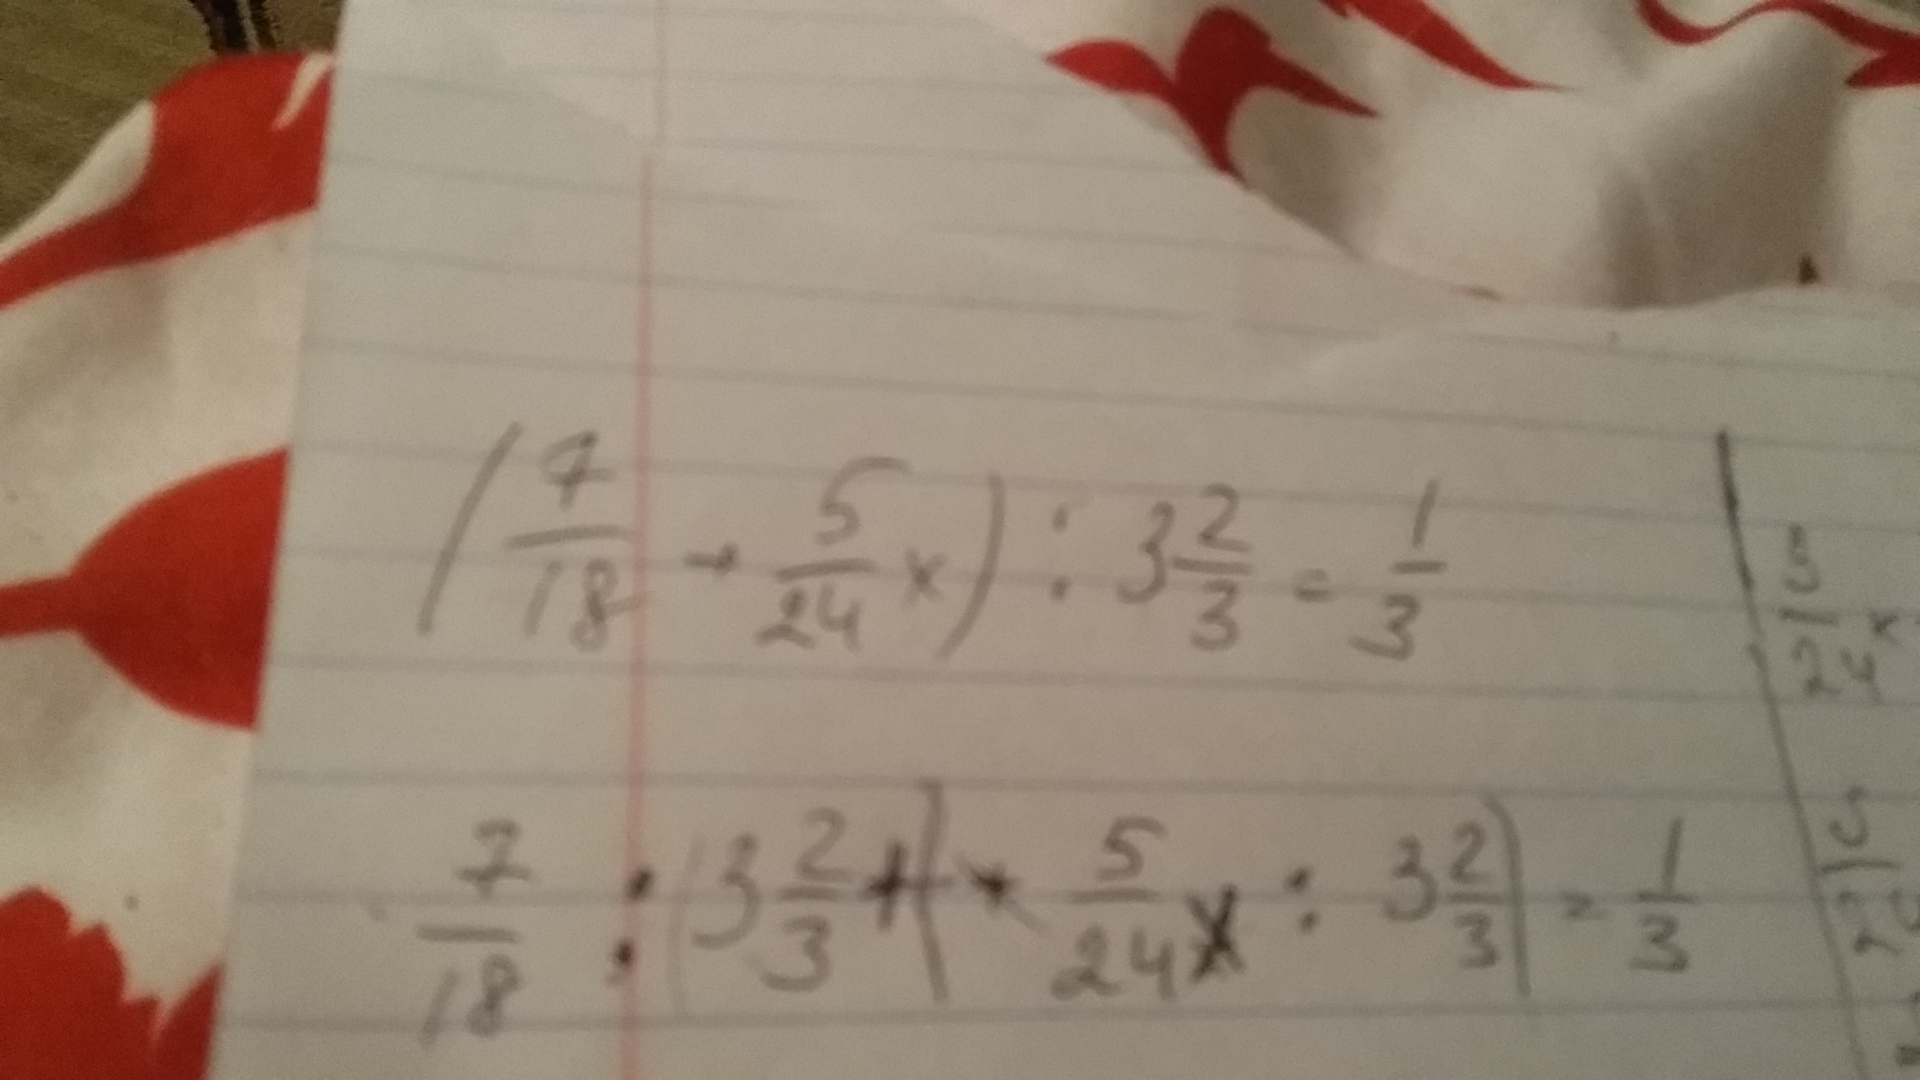 (7/18 + 5/24 x) : 3 2/3 = 1/3
7/18 : (3 2/3 + 5/24 x : 3 2/3) = 1/3
5/24 x